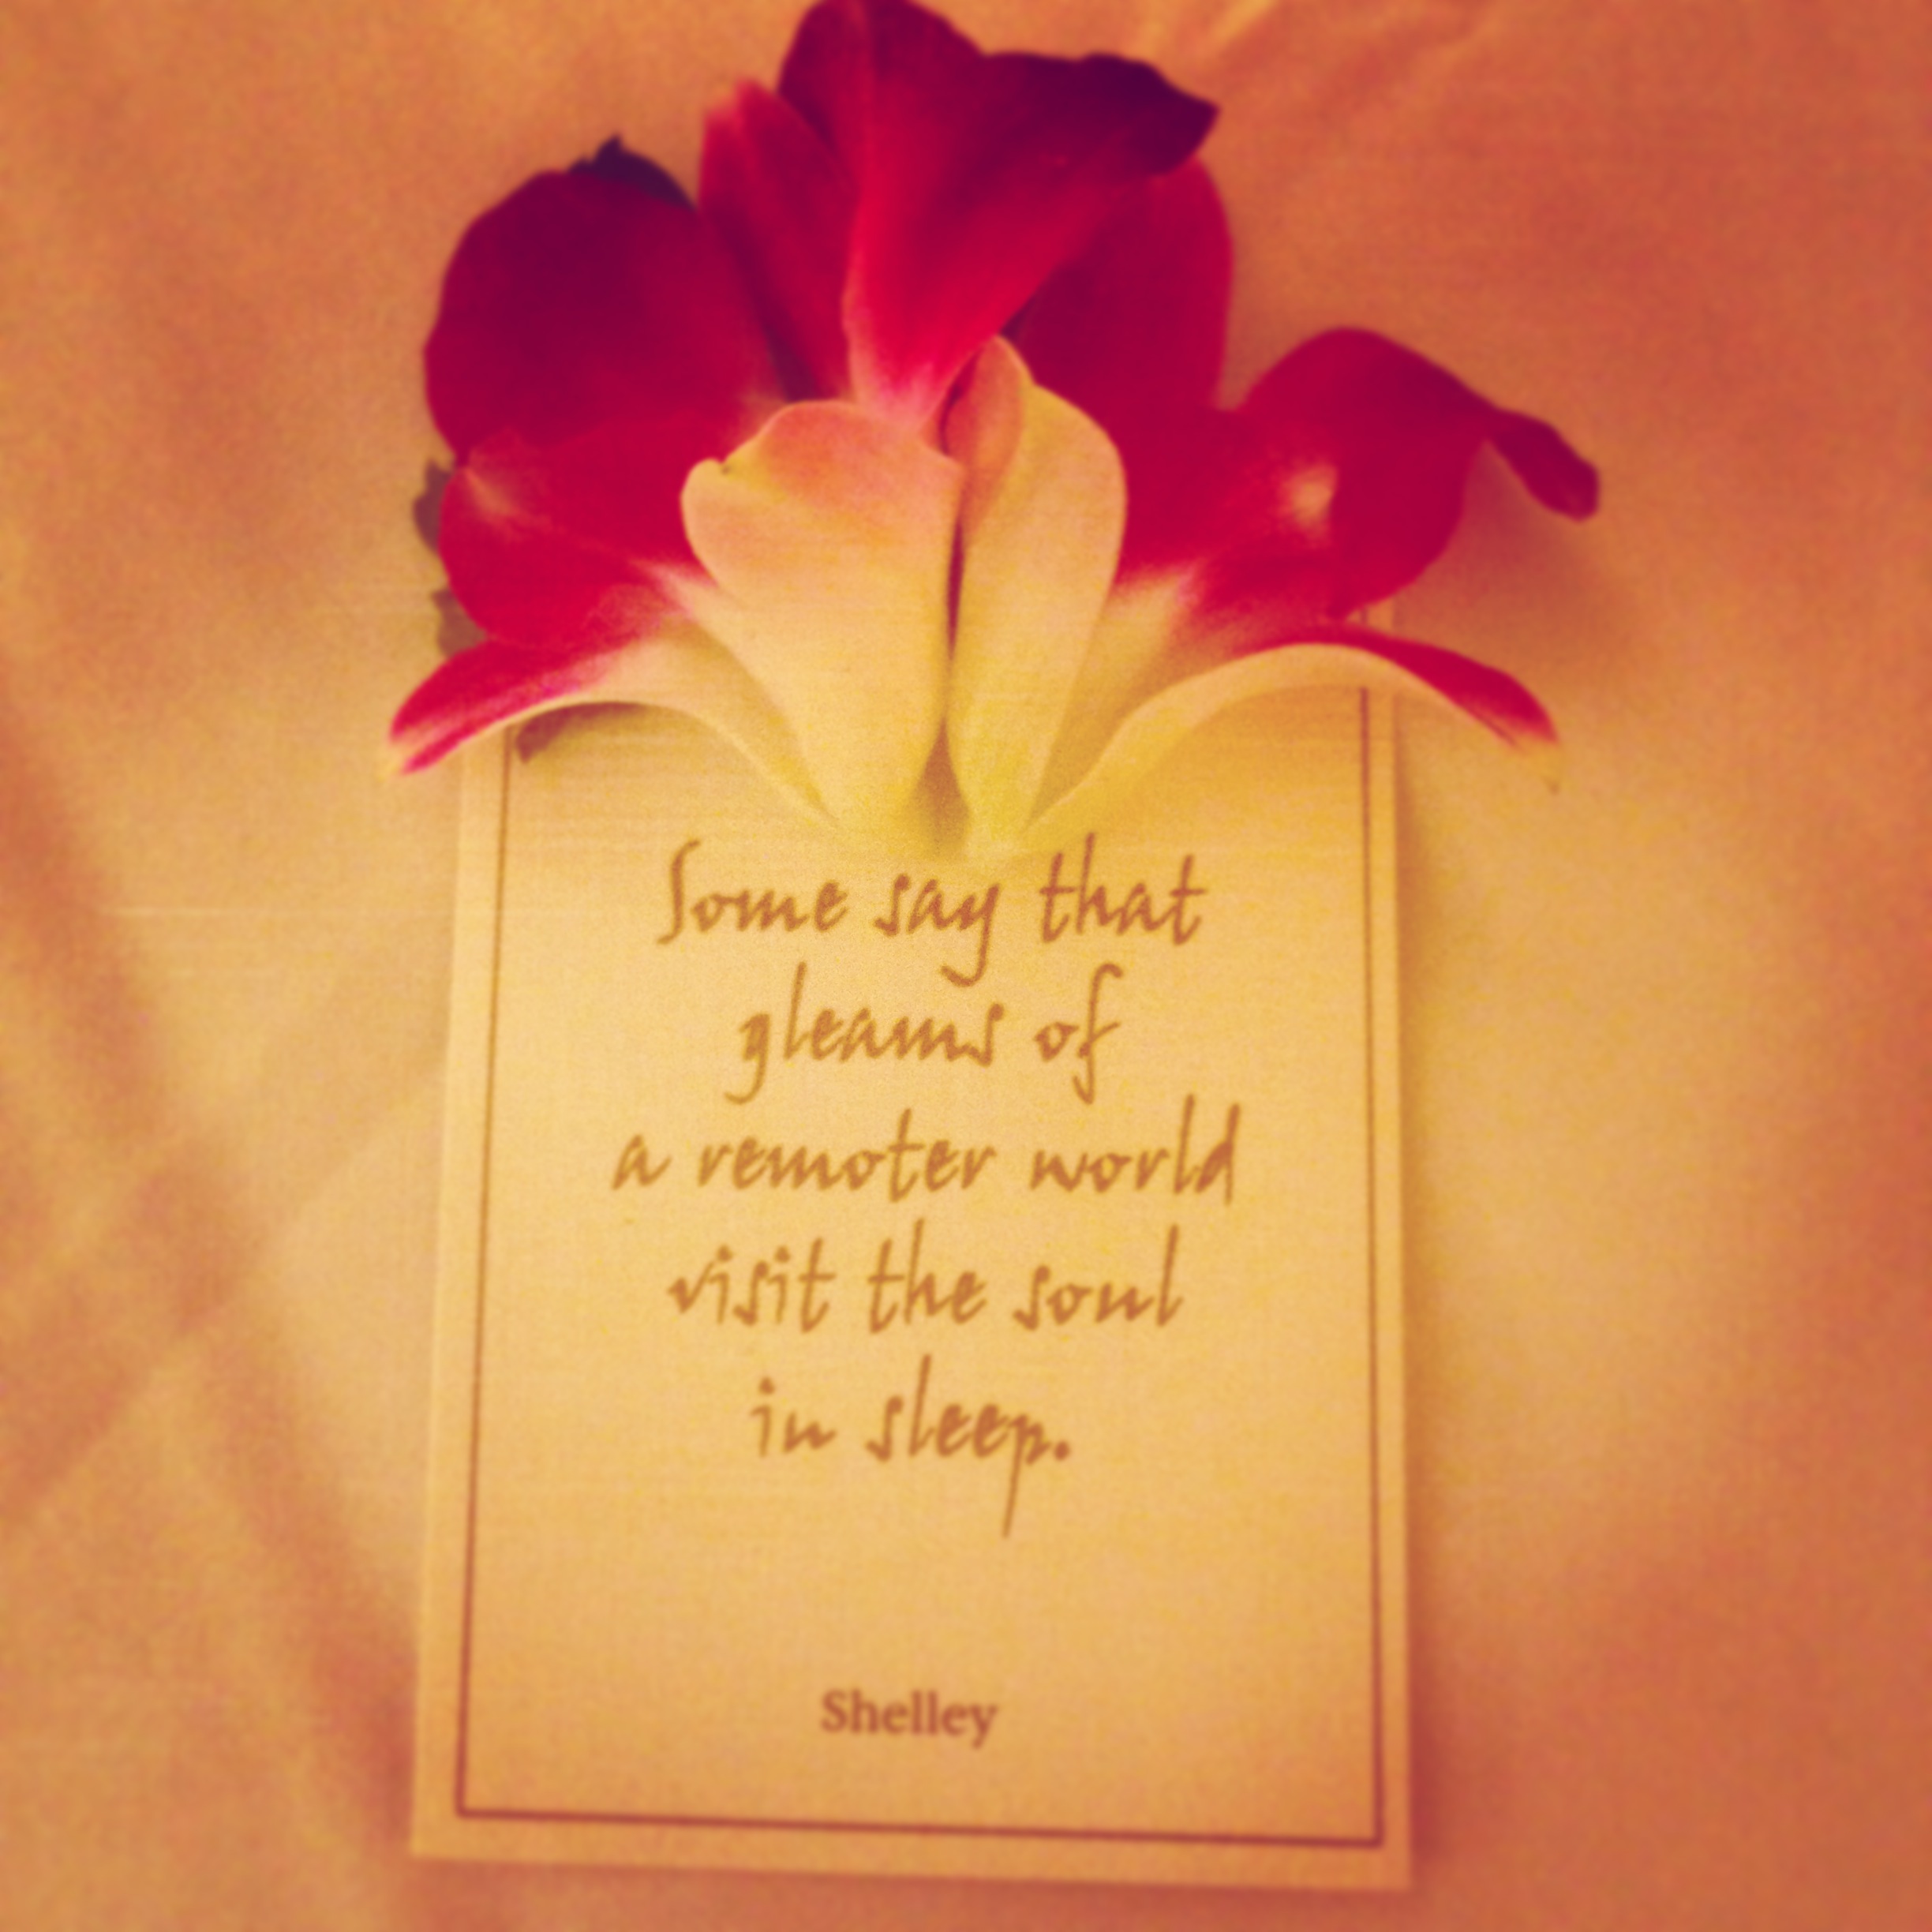 Some say that
gleams of
a remoter world
visit the soul
in sleep.
Shelley